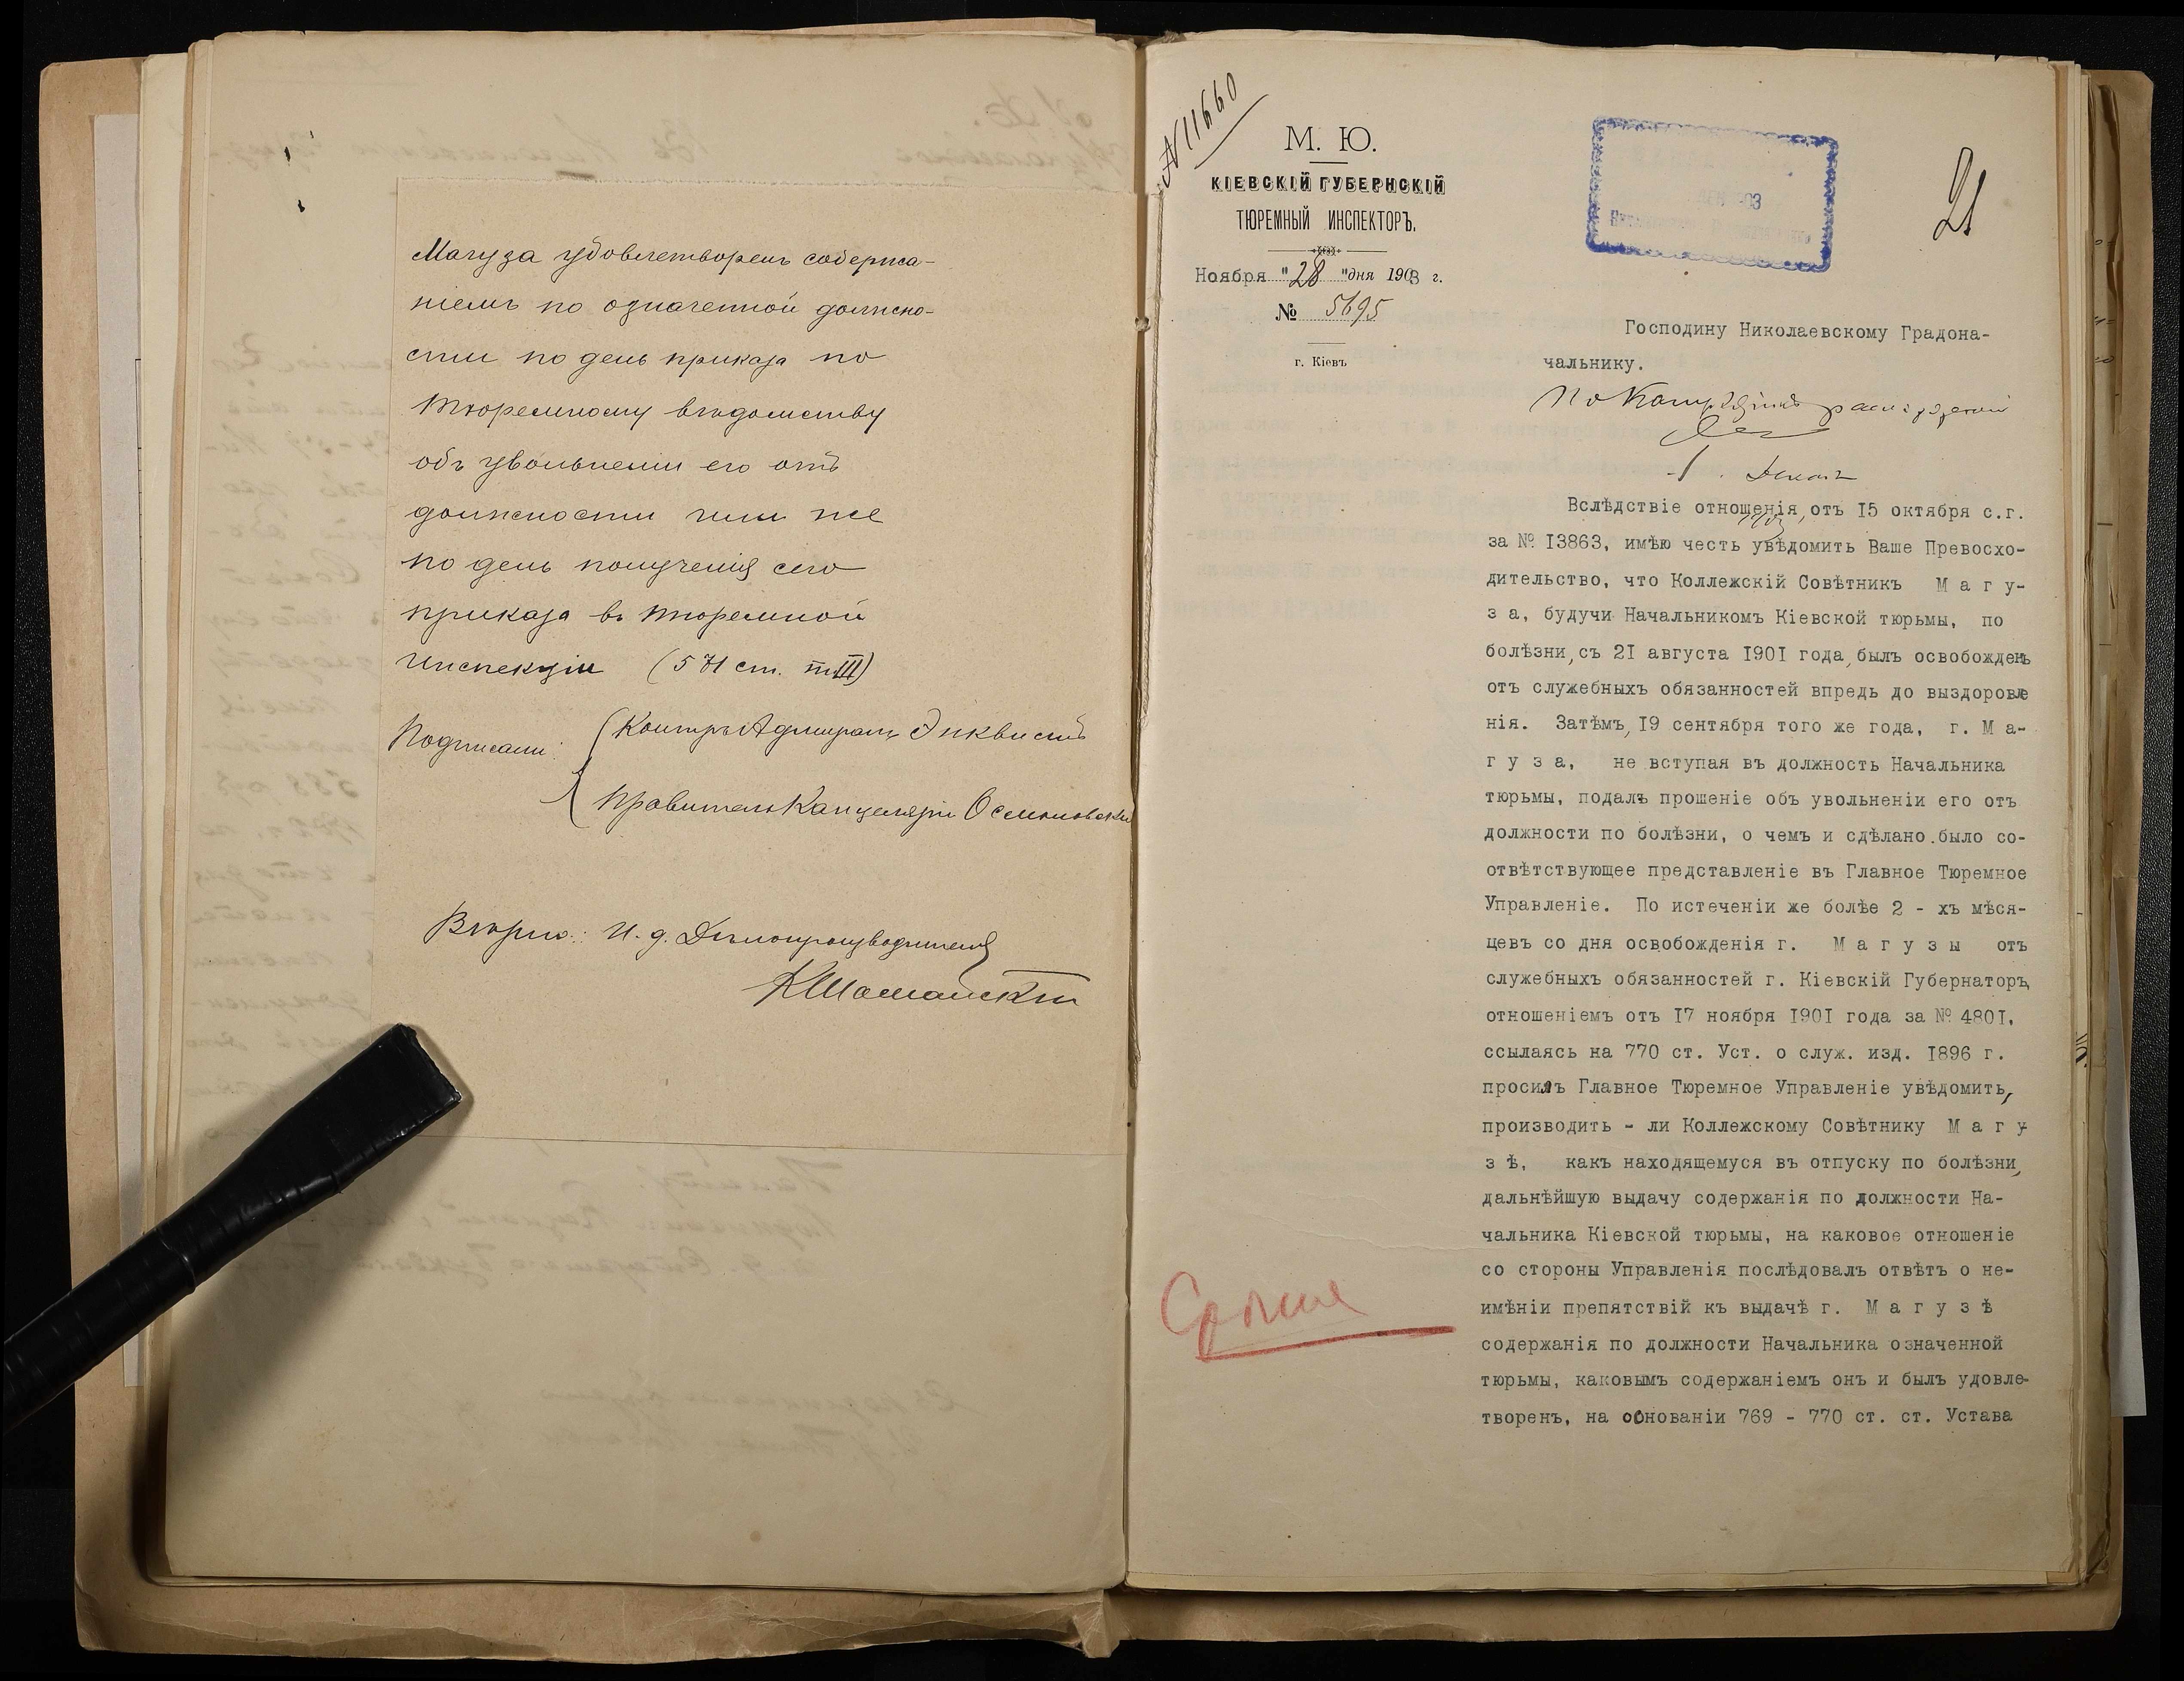 Магуза удовлетворенъ содержа-
ніемъ по означенной должно-
сти по день приказа по
тюремному вѣдомству
объ увольненіи его отъ
должности или же
по день полученія сего
приказа въ тюремной
инспекціи (571 ст. т III)
Подписали: Контръ Адмиралъ Энквистъ
Правитель Канцеляріи
Вѣрно: И. д. Дѣлопроизводителя
№ 11660
М. Ю.
КІЕВСКІЙ ГУБЕРНСКІЙ
ТЮРЕМНЫЙ ИНСПЕКТОРЪ.
Ноября "28" дня 1903 г.
№ 5695
г. Кіевъ
21
Господину Николаевскому Градона-
чальнику.
Вслѣдствіе отношенія, отъ 15 октября с.г.
за № 13863, имѣю честь увѣдомить Ваше Превосхо-
дительство, что Коллежскій Совѣтникъ М а г у-
з а, будучи Начальникомъ Кіевской тюрьмы, по
болѣзни, съ 21 августа 1901 года, былъ освобожденъ
отъ служебныхъ обязанностей впредь до выздоровле
нія. Затѣмъ, 19 сентября того же года, г. М а-
г у з а, не вступая въ должность Начальника
тюрьмы, подалъ прошеніе объ увольненіи его отъ
должности по болѣзни, о чемъ и сдѣлано было со-
отвѣтствующее представленіе въ Главное Тюремное
Управленіе. По истеченіи же болѣе 2 - хъ мѣся-
цевъ со дня освобожденія г. М а г у з ы отъ
служебныхъ обязанностей г. Кіевскій Губернаторъ,
отношеніемъ отъ 17 ноября 1901 года за № 4801,
ссылаясь на 770 ст. Уст. о служ. изд. 1896 г.
просилъ Главное Тюремное Управленіе увѣдомить,
производить - ли Коллежскому Совѣтнику М а г у
з ѣ, какъ находящемуся въ отпуску по болѣзни,
дальнѣйшую выдачу содержанія по должности На-
чальника Кіевской тюрьмы, на каковое отношеніе
со стороны Управленія послѣдовалъ отвѣтъ о не-
имѣніи препятствій къ выдачѣ г. М а г у з ѣ
содержанія по должности Начальника означенной
тюрьмы, каковымъ содержаніемъ онъ и былъ удовле-
творенъ, на основаніи 769 - 770 ст. ст. Устава